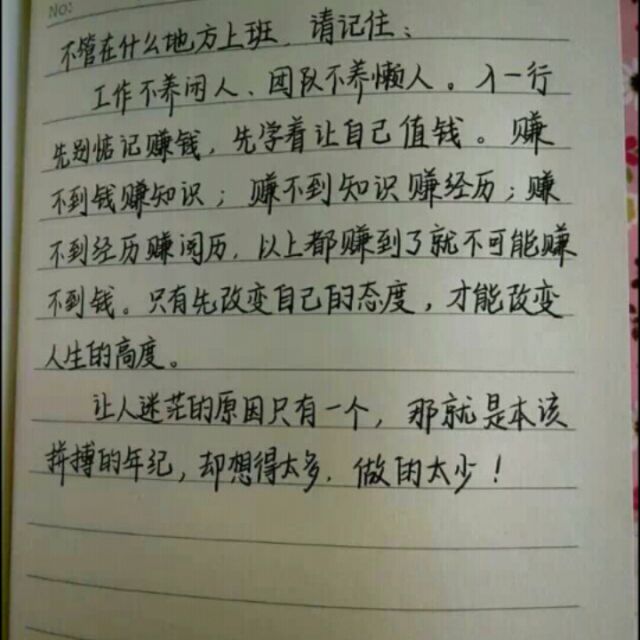 No:
不管在什么地方上班,请记住:
工作不养闲人、团队不养懒人。入一行
先别惦记赚钱,先学着让自己值钱。赚
不到钱赚知识;赚不到知识赚经历;赚
不到经历赚阅历,以上都赚到了就不可能赚
不到钱。只有先改变自己的态度,才能改变
人生的高度。
让人迷茫的原因只有一个,那就是本该
拼搏的年纪,却想得太多,做的太少!